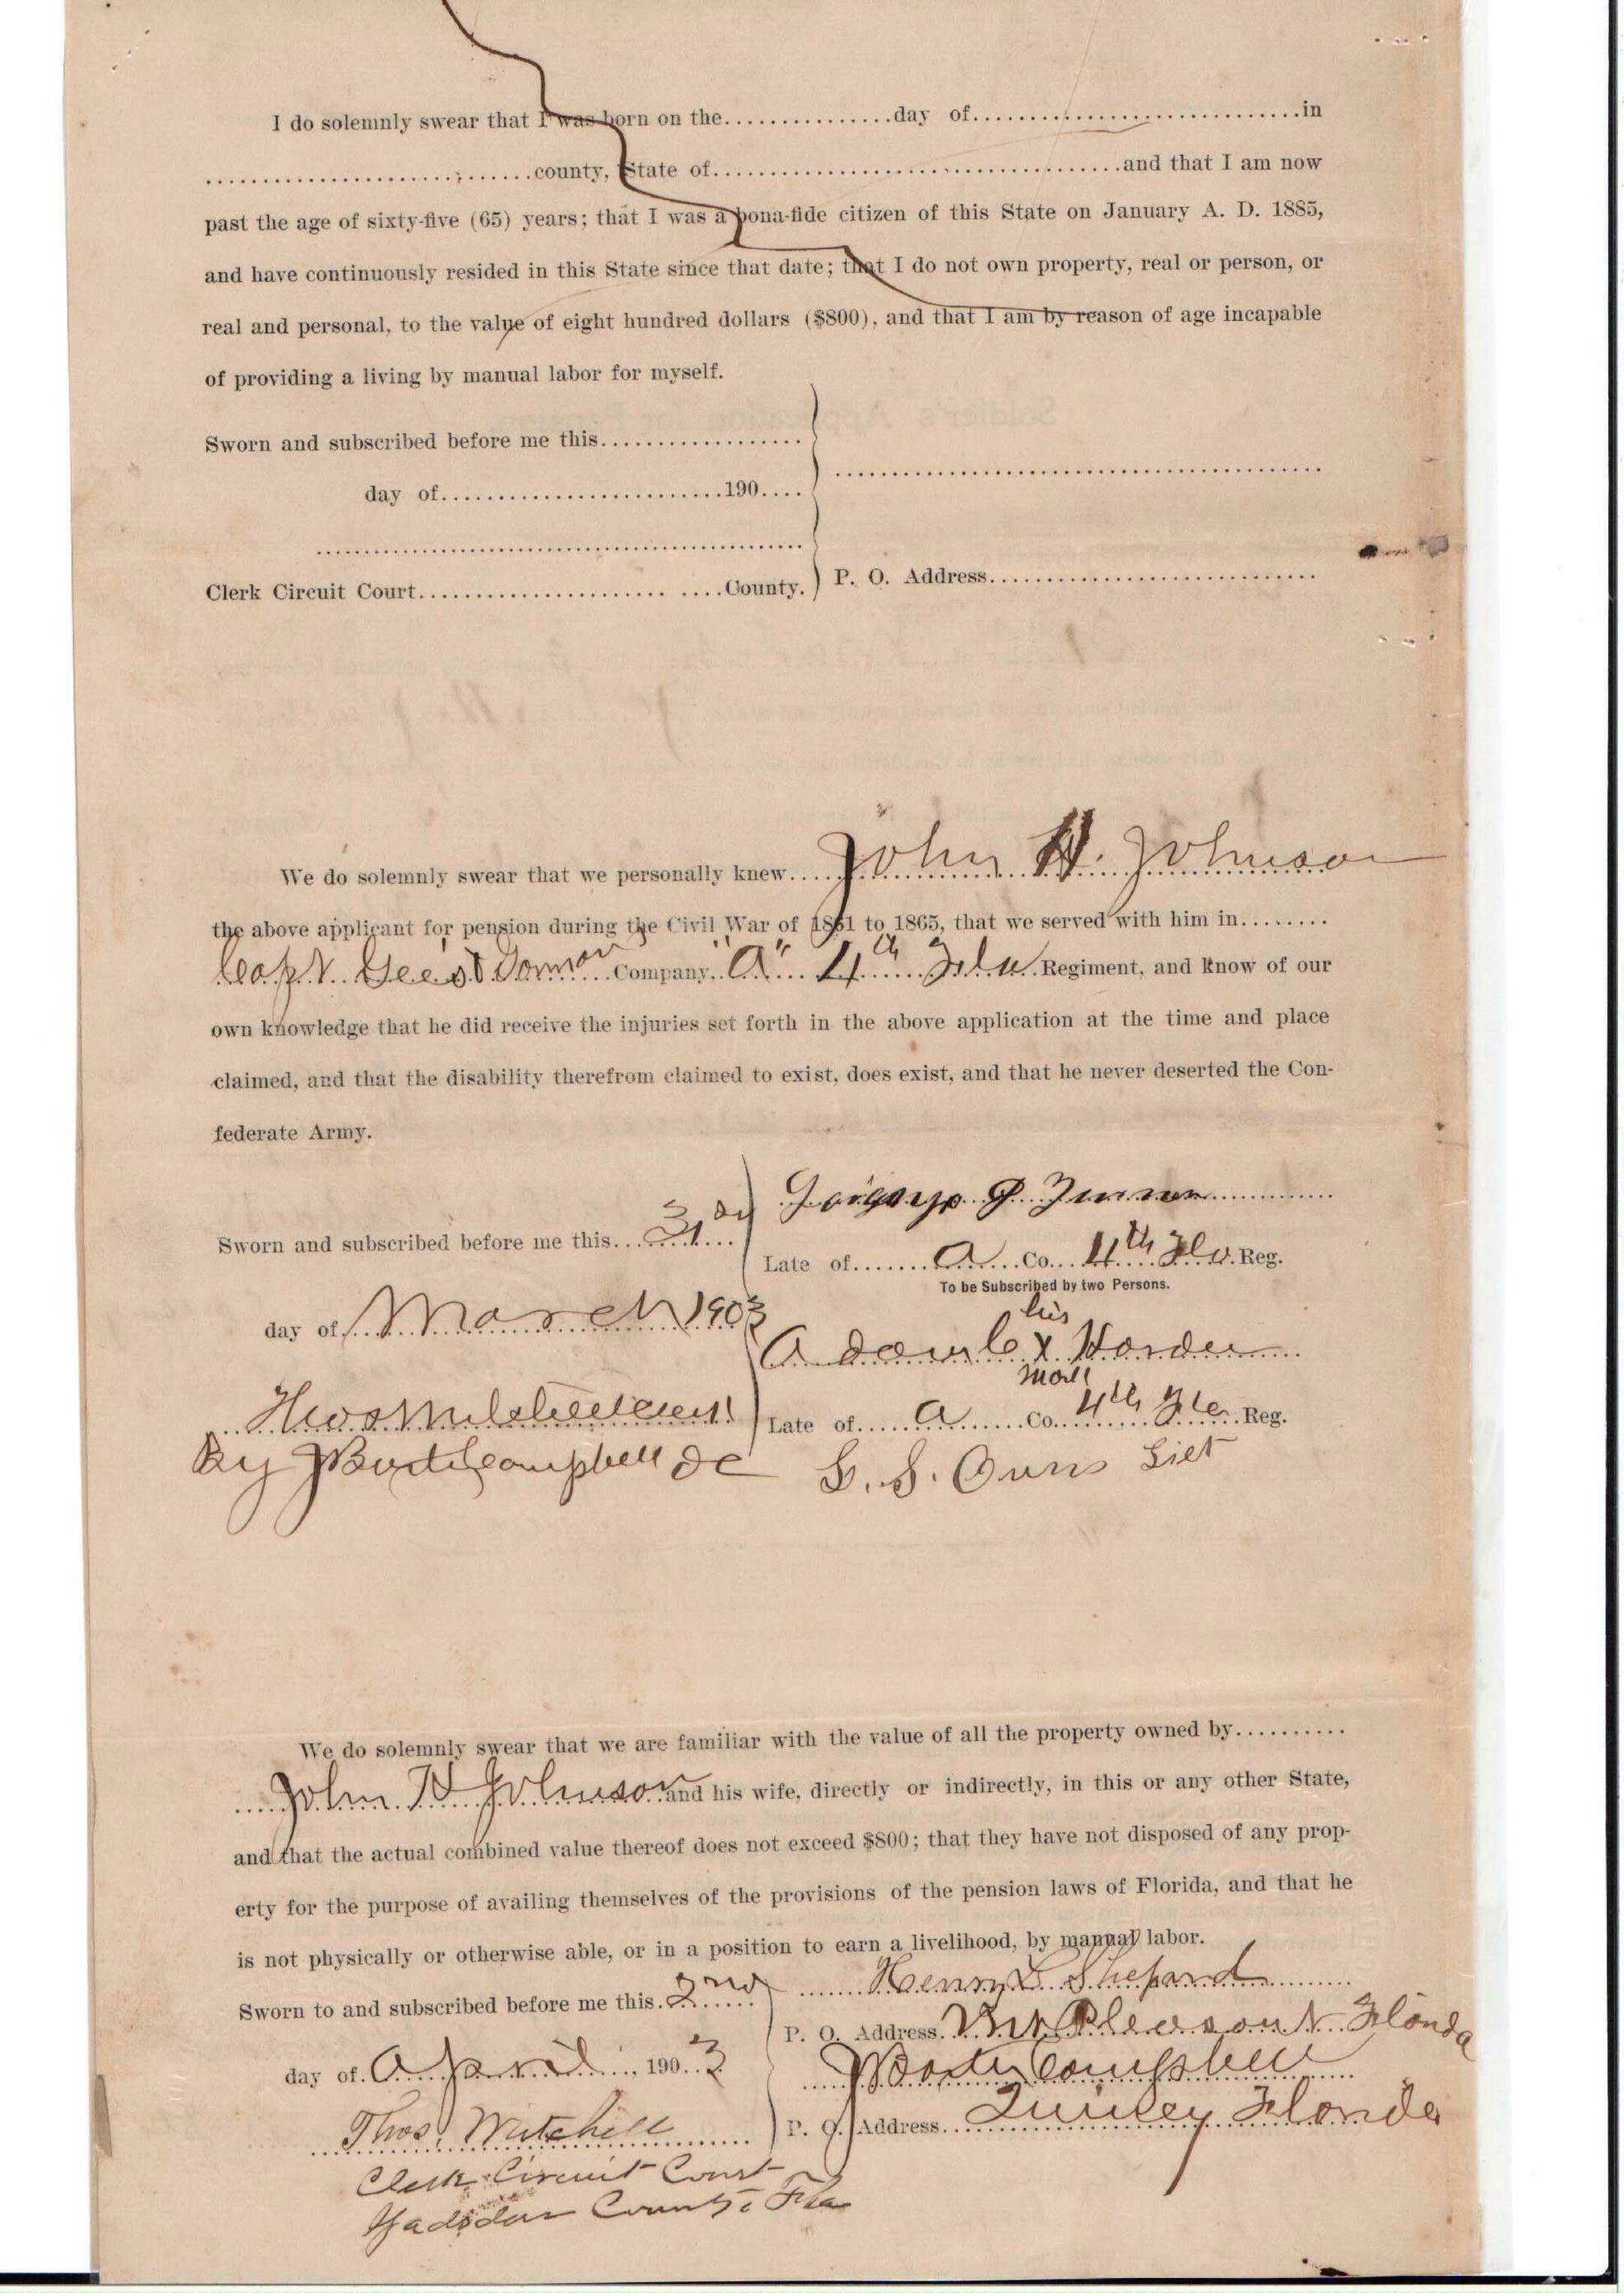 I do solemnly swear that I was born on the...............day of.............................in
.............................county, State of....................................and that I am now
past the age of sixty-five (65) years; that I was a bona-fide citizen of this State on January A. D. 1885,
and have continuously resided in this State since that date; that I do not own property, real or person, or
real and personal, to the value of eight hundred dollars ($800), and that I am by reason of age incapable
of providing a living by manual labor for myself.
Sworn and subscribed before me this..................
day of.........................190....
Clerk Circuit Court..........................County.
P. O. Address.............................
We do solemnly swear that we personally knew John H. Johnson
the above applicant for pension during the Civil War of 1861 to 1865, that we served with him in........
Capt. Gee's Company "A" 4th Fla Regiment, and know of our
own knowledge that he did receive the injuries set forth in the above application at the time and place
claimed, and that the disability therefrom claimed to exist, does exist, and that he never deserted the Con-
federate Army.
Sworn and subscribed before me this 31
day of March 1903
By Campbell DC
George
Late of A Co. 4th Fla. Reg.
To be Subscribed by two Persons.
his
Adam C x Harden
mark
Late of A Co. 4th Fla Reg.
We do solemnly swear that we are familiar with the value of all the property owned by..........
John H Johnson and his wife, directly or indirectly, in this or any other State,
and that the actual combined value thereof does not exceed $800; that they have not disposed of any prop-
erty for the purpose of availing themselves of the provisions of the pension laws of Florida, and that he
is not physically or otherwise able, or in a position to earn a livelihood, by manual labor.
Sworn to and subscribed before me this 2nd
day of April, 1903
Thos. Mitchell
Clerk Circuit Court
Gadsden County Fla
Henry L Shepard
P. O. Address. Mt Pleasant Florida
Campbell
P. O. Address. Quincy Florida